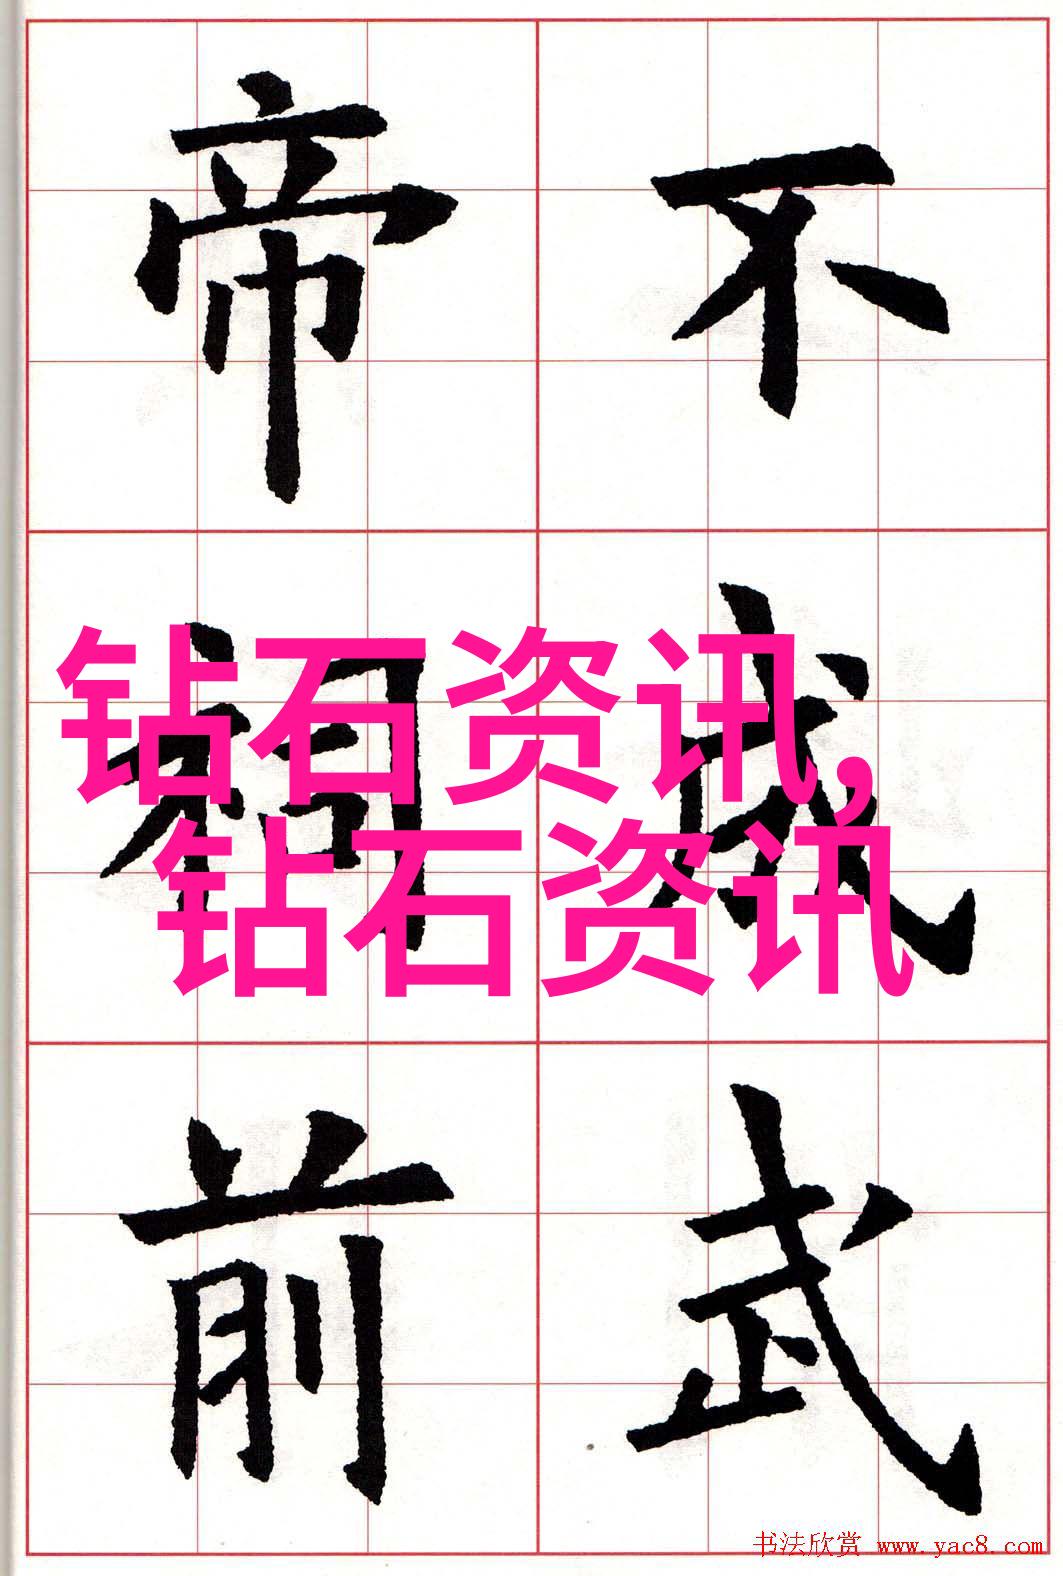 不
武
帝祠前
钻石资讯,
钻石资讯
书法欣赏 www.yac8.com